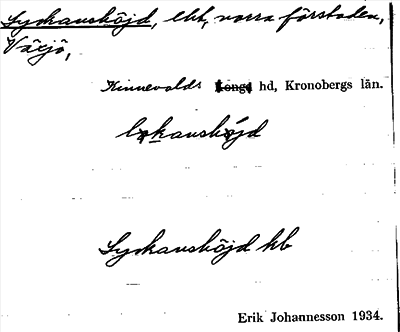 Lyckanshöjd, lht, norra förstaden,
Växjö,
Kinnevalds Konga hd, Kronobergs län.
Lyckanshöjd hb
Erik Johannesson 1934.